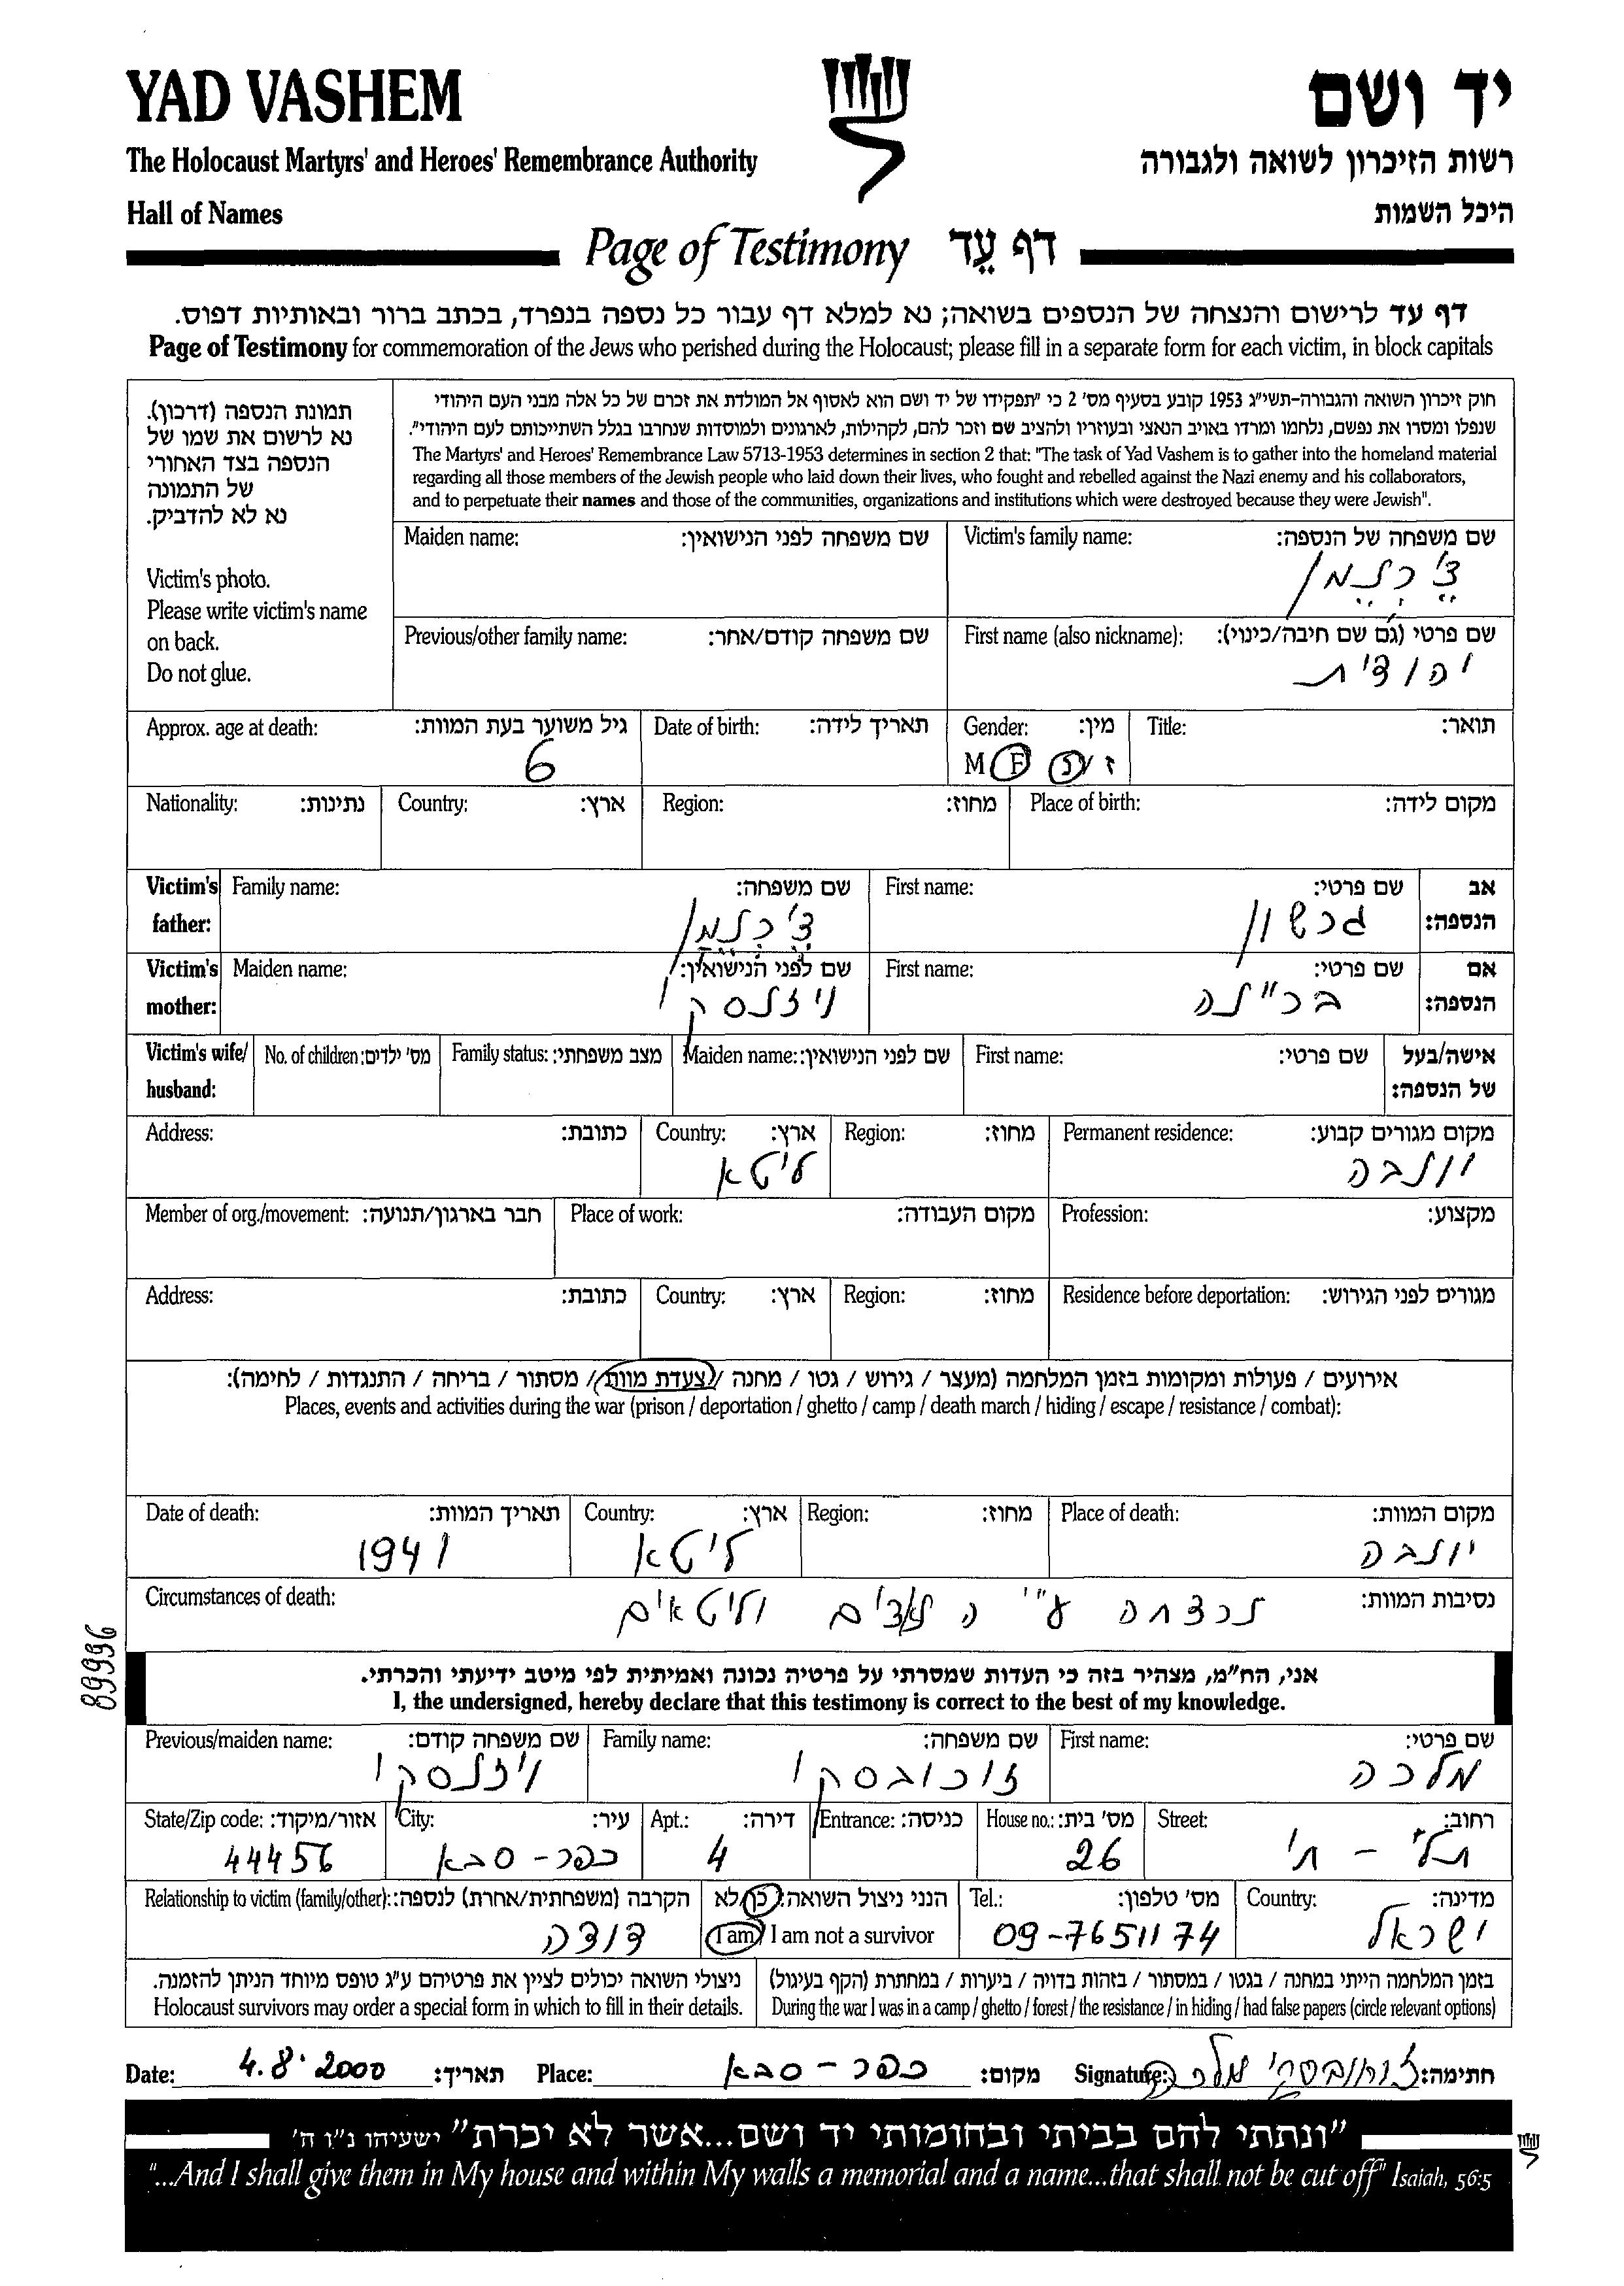 YAD VASHEM
יד ושם
The Holocaust Martyrs' and Heroes' Remembrance Authority
רשות הזיכרון לשואה ולגבורה
Hall of Names
היכל השמות
Page of Testimony דף עֵד
דף עד לרישום והנצחה של הנספים בשואה; נא למלא דף עבור כל נספה בנפרד, בכתב ברור ובאותיות דפוס.
Page of Testimony for commemoration of the Jews who perished during the Holocaust; please fill in a separate form for each victim, in block capitals
תמונת הנספה (דרכון).
נא לרשום את שמו של
הנספה בצד האחורי
של התמונה
נא לא להדביק.
Victim's photo.
Please write victim's name
on back.
Do not glue.
חוק זיכרון השואה והגבורה-תשי"ג 1953 קובע בסעיף מס' 2 כי "תפקידו של יד ושם הוא לאסוף אל המולדת את זכרם של כל אלה מבני העם היהודי
שנפלו ומסרו את נפשם, נלחמו ומרדו באויב הנאצי ובעוזריו ולהציב שם וזכר להם, לקהילות, לארגונים ולמוסדות שנחרבו בגלל השתייכותם לעם היהודי".
The Martyrs' and Heroes' Remembrance Law 5713-1953 determines in section 2 that: "The task of Yad Vashem is to gather into the homeland material
regarding all those members of the Jewish people who laid down their lives, who fought and rebelled against the Nazi enemy and his collaborators,
and to perpetuate their names and those of the communities, organizations and institutions which were destroyed because they were Jewish".
Maiden name: שם משפחה לפני הנישואין:
Victim's family name: שם משפחה של הנספה:
צ'כלמן
Previous/other family name: שם משפחה קודם/אחר:
First name (also nickname): שם פרטי (גם שם חיבה/כינוי):
יהודית
Approx. age at death: גיל משוער בעת המוות:
6
Date of birth: תאריך לידה:
Gender: מין:
M F ז/נ
Title: תואר:
Nationality: נתינות:
Country: ארץ:
Region: מחוז:
Place of birth: מקום לידה:
Victim's father: Family name: שם משפחה:
צ'כלמן
First name: שם פרטי:
גרשון
אב הנספה:
Victim's mother: Maiden name: שם לפני הנישואין:
ויזלסקי
First name: שם פרטי:
אם הנספה:
Victim's wife/ husband:
No. of children: מס' ילדים:
Family status: מצב משפחתי:
Maiden name: שם לפני הנישואין:
First name: שם פרטי:
אישה/בעל של הנספה:
Address: כתובת:
Country: ארץ:
ליטא
Region: מחוז:
Permanent residence: מקום מגורים קבוע:
Member of org./movement: חבר בארגון/תנועה:
Place of work: מקום העבודה:
Profession: מקצוע:
Address: כתובת:
Country: ארץ:
Region: מחוז:
Residence before deportation: מגורים לפני הגירוש:
אירועים / פעולות ומקומות בזמן המלחמה (מעצר / גירוש / גטו / מחנה / צעדת מוות / מסתור / בריחה / התנגדות / לחימה):
Places, events and activities during the war (prison / deportation / ghetto / camp / death march / hiding / escape / resistance / combat):
Date of death: תאריך המוות:
1941
Country: ארץ:
ליטא
Region: מחוז:
Place of death: מקום המוות:
Circumstances of death: נסיבות המוות:
נרצחה ע"י הנאצים וליטאים
89996
אני, הח"מ, מצהיר בזה כי העדות שמסרתי על פרטיה נכונה ואמיתית לפי מיטב ידיעתי והכרתי.
I, the undersigned, hereby declare that this testimony is correct to the best of my knowledge.
Previous/maiden name: שם משפחה קודם:
ויזלסקי
Family name: שם משפחה:
זוכובסקי
First name: שם פרטי:
מלכה
State/Zip code: אזור/מיקוד:
44456
City: עיר:
כפר-סבא
Apt.: דירה:
4
Entrance: כניסה:
House no.: מס' בית:
26
Street: רחוב:
תל-חי
Relationship to victim (family/other): הקרבה (משפחתית/אחרת) לנספה:
דודה
הנני ניצול השואה: כן/לא
I am/ I am not a survivor
Tel.: מס' טלפון:
09-7651174
Country: מדינה:
ישראל
ניצולי השואה יכולים לציין את פרטיהם ע"ג טופס מיוחד הניתן להזמנה.
Holocaust survivors may order a special form in which to fill in their details.
בזמן המלחמה הייתי במחנה / בגטו / במסתור / בזהות בדויה / ביערות / במחתרת (הקף בעיגול)
During the war I was in a camp / ghetto / forest / the resistance / in hiding / had false papers (circle relevant options)
Date: 4.8.2000 תאריך: Place: כפר-סבא מקום: Signature: זוכובסקי מלכה חתימה:
"ונתתי להם בביתי ובחומותי יד ושם...אשר לא יכרת" ישעיהו נ"ו ה'
"...And I shall give them in My house and within My walls a memorial and a name...that shall not be cut off" Isaiah, 56:5